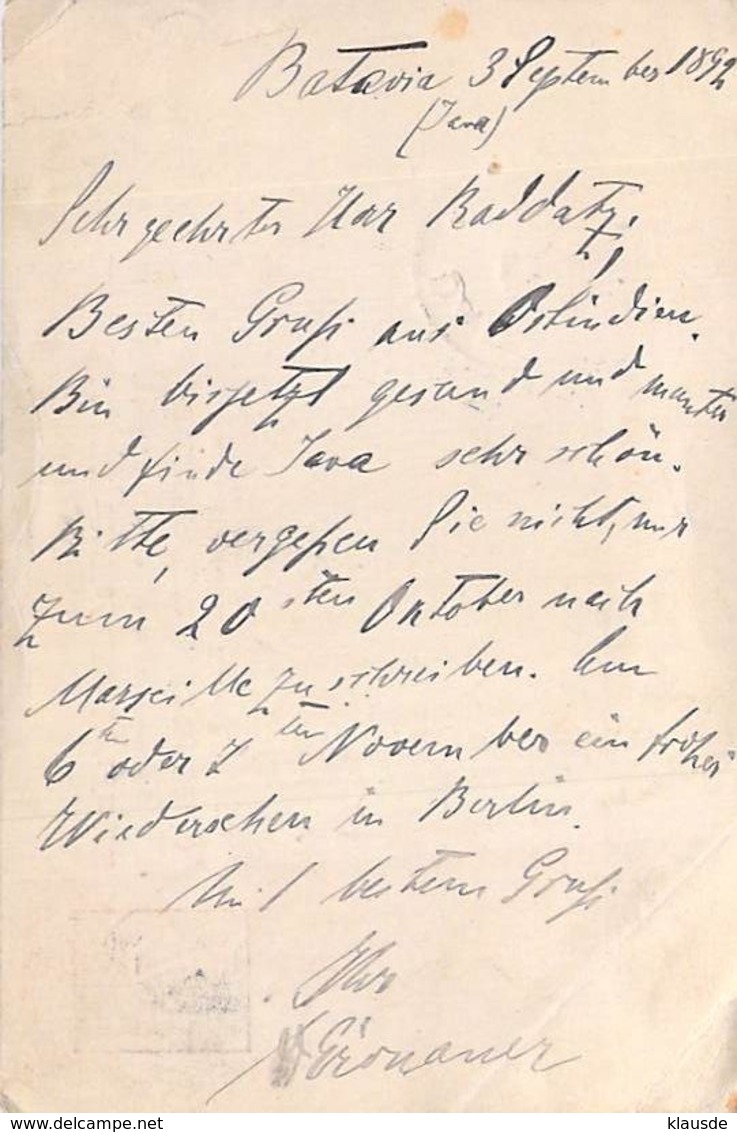 Batavia 3 September 1892
(Java)
Sehr geehrter Herr Raddatz,
Besten Gruß aus Ostindien.
Bin bisjetzt gesund und munter
und finde Java sehr schön.
Bitte, vergeßen Sie nicht, mir
zum 20sten Oktober nach
Marseille zu schreiben. Am
6ten oder 7ten November ein frohes
Wiedersehen in Berlin.
Mit bestem Gruß
Ihr
Gronauer
klausde